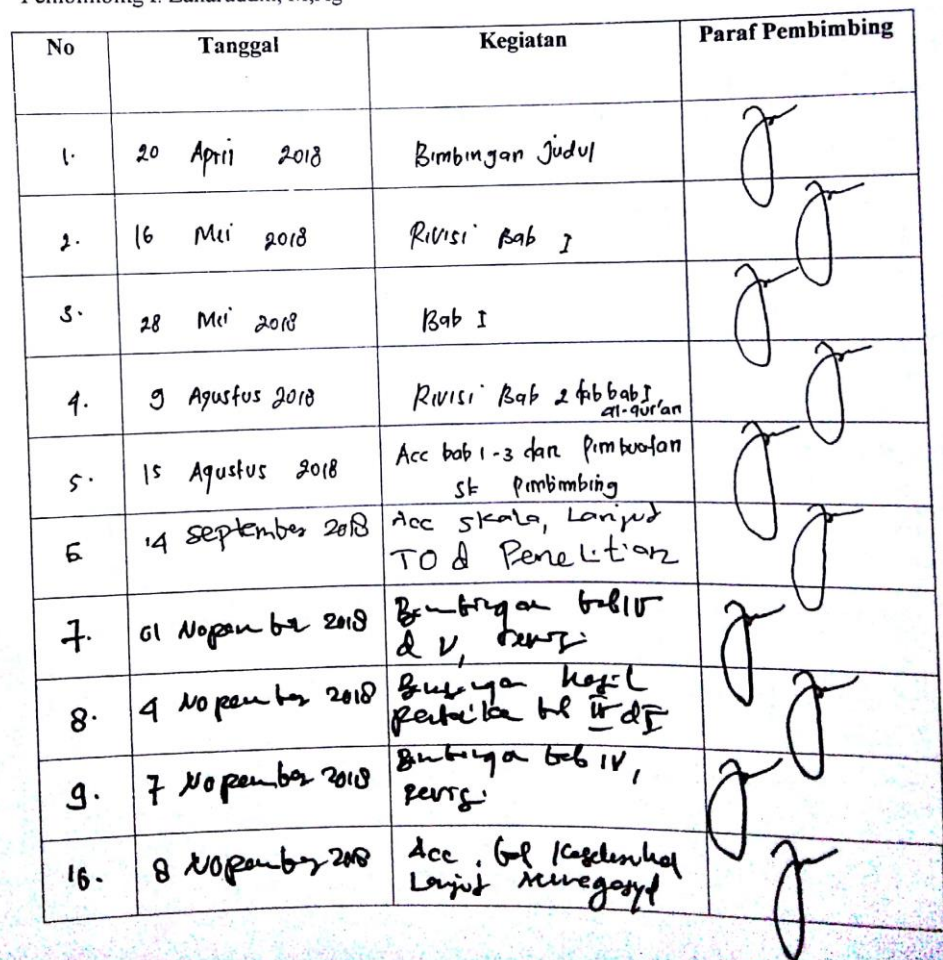 No Tanggal Kegiatan Paraf Pembimbing
1. 20 April 2018 Bimbingan Judul
2. 16 Mei 2018 Rivisi Bab I
3. 28 Mei 2018 Bab I
4. 9 Agustus 2018 Rivisi Bab 2 bab I,
al-qur'an
5. 15 Agustus 2018 Acc bab 1-3 dan Pimbuatan
SK Pimbimbing
6 14 september 2018 Acc skala, Lanjut
TO d Penelitian
7. 01 Nopember 2018 Bimbingan bab IV
d V, revisi
8. 4 Nopember 2018 Bimbingan hasil
bab IV d
9. 7 Nopember 2018 Bimbingan bab IV,
revisi
10. 8 Nopember 2018 Acc, bab
Lanjut